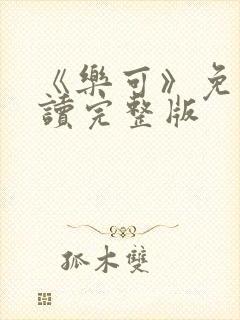 《樂可》免
讀完整版
孤木雙